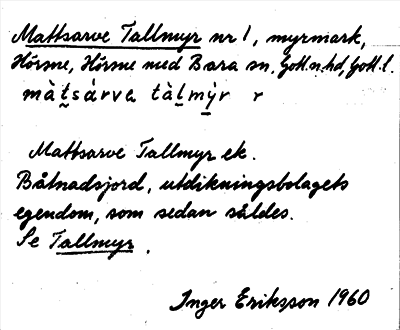 Mattsarve Tallmyr nr 1, myrmark,
Hörsne, Hörsne med Bara sn, Gotl.n.hd, Gotl.l.
màt̰sárva tàl̰mỳr r
Mattsarve Tallmyr ek.
Båtnadsjord, utdikningsbolagets
egendom, som sedan såldes.
Se Tallmyr.
Inger Eriksson 1960